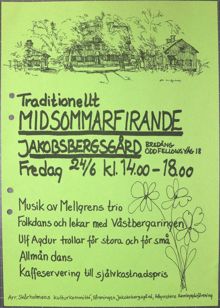 Traditionellt
MIDSOMMARFIRANDE
JAKOBSBERGSGÅRD BREDÄNG
ODDFELLOWSVÄG 18
Fredag 24/6 kl. 14.00-18.00
Musik av Mellgrens trio
Folkdans och lekar med Västbergaringen
Ulf Agdur trollar för stora och för små
Allmän dans
Kaffeservering till självkostnadspris
Arr. Skärholmens kulturkommitté, föreningen Jakobsbergsgård,